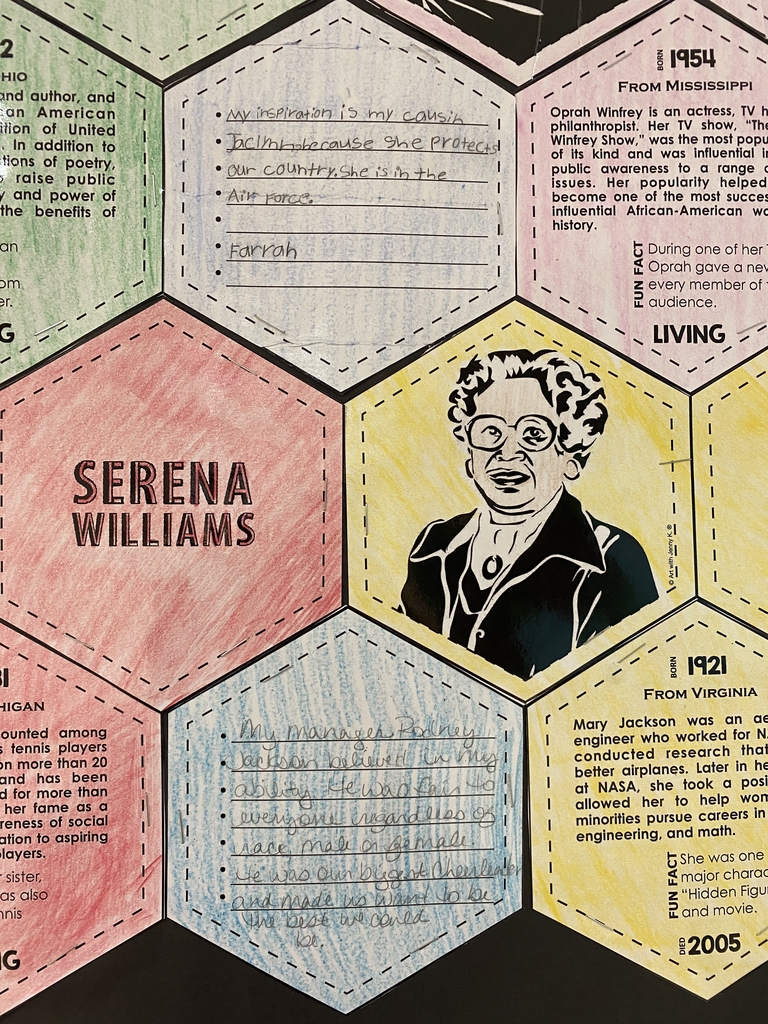 2
HIO
and author, and
an American
ition of United
. In addition to
tions of poetry,
raise public
y and power of
the benefits of
an
om
er.
G
My inspiration is my cousin
because she protects
our country. She is in the
Air Force.
Farrah
BORN 1954
FROM MISSISSIPPI
Oprah Winfrey is an actress, TV h
philanthropist. Her TV show, "The
Winfrey Show," was the most popu
of its kind and was influential in
public awareness to a range o
issues. Her popularity helped
become one of the most success
influential African-American wo
history.
FUN FACT
During one of her T
Oprah gave a new
every member of t
audience.
LIVING
SERENA
WILLIAMS
© Art with Jenny K. ®
81
HIGAN
ounted among
s tennis players
on more than 20
and has been
d for more than
her fame as a
reness of social
ation to aspiring
players.
r sister,
as also
nnis
NG
My manager Rodney
Jackson believed in my
ability. He was fair to
everyone regardless of
race, male or female.
He was our biggest cheerleader
and made us want to be
the best we could
be.
BORN 1921
FROM VIRGINIA
Mary Jackson was an ae
engineer who worked for NA
conducted research that
better airplanes. Later in he
at NASA, she took a posi
allowed her to help wom
minorities pursue careers in
engineering, and math.
FUN FACT
She was one
major charac
"Hidden Figu
and movie.
DIED 2005